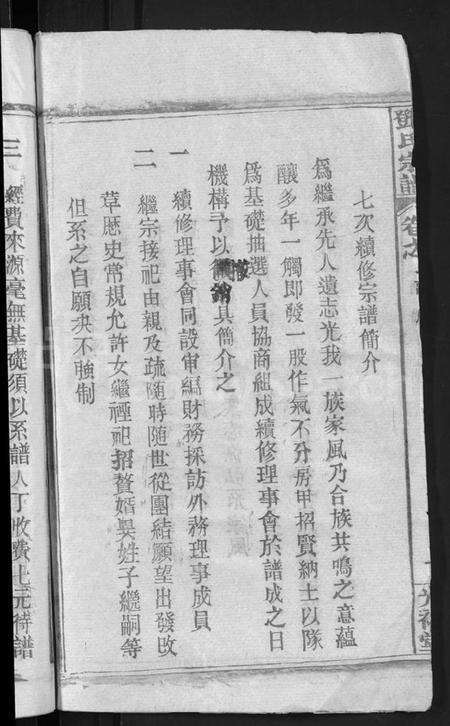 鄧氏宗譜 卷之
七次續修宗譜簡介
為繼承先人遺志光我一族家風乃合族共鳴之意蘊
釀多年一觸即發一股作氣不分房甲招賢納士以隊
為基礎抽選人員協商組成續修理事會於譜成之日
機構予以徹銷具簡介之
一 續修理事會同設审編財務採訪外務理事成員
二 繼宗接祀由親及疏随時随世從團結願望出發改
革歷史常規允許女繼禋祀招贅婿吳姓子繼嗣等
但系之自願决不強制
三 經費來源毫無基礎須以系譜人丁收費七元待譜